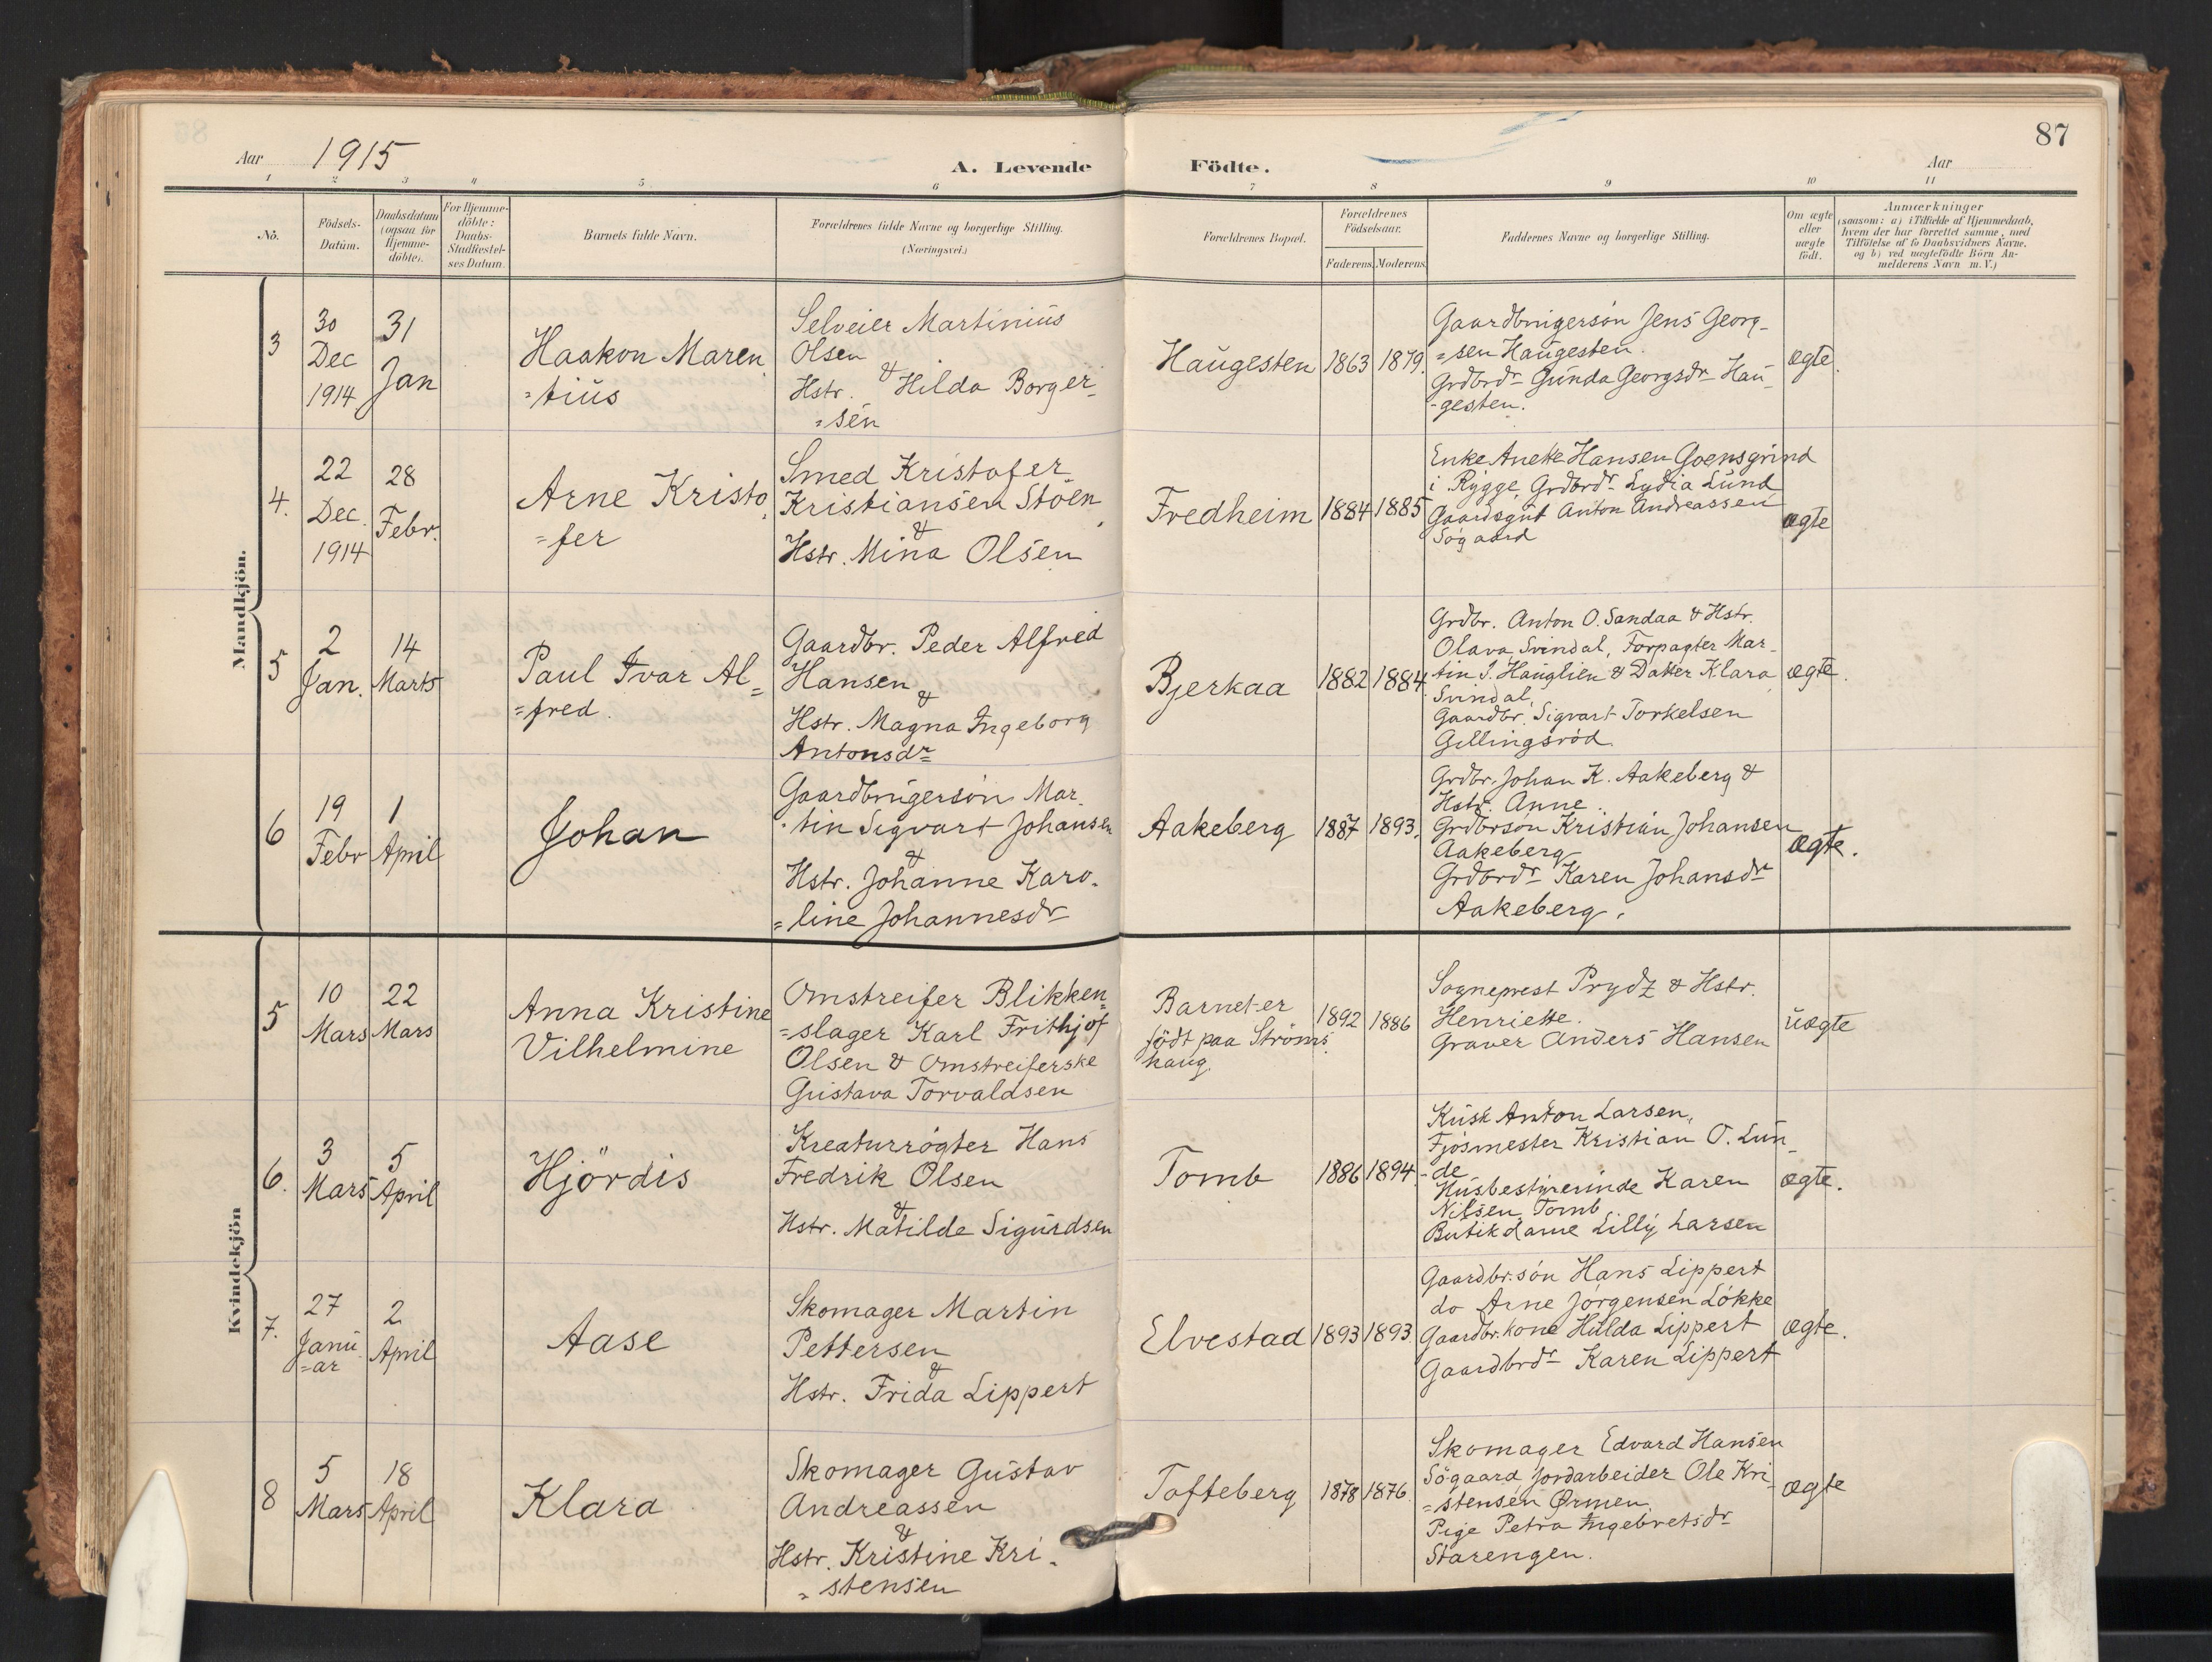 87
Aar 1915
A. Levende Födte.
Aar
1 2 3 4 5 6 7 8 9 10 11
No.
Födsels-
Datum.
Daabsdatum
(ogsaa for
Hjemme-
döbte).
For Hjemme-
döbte:
Daabs-
Stadfæstel-
ses Datum.
Barnets fulde Navn.
Forældrenes fulde Navne og borgerlige Stilling.
(Næringsvei.)
Forældrenes Bopæl.
Forældrenes
Födselsaar.
Faderens. Moderens.
Faddernes Navne og borgerlige Stilling.
Om ægte
eller
uægte
födt.
Anmærkninger
(saasom: a) i Tilfælde af Hjemmedaab,
hvem der har forrettet samme, med
Tilföielse af to Daabsvidners Navne,
og b) ved uægtefödte Börn An-
melderens Navn m. V.)
Mandkjön.
3
30
Dec
1914
31
Jan
Haakon Maren
=tius
Selveier Martinius
Olsen
&
Hstr. Hilda Borger-
=sen
Haugesten
1863
1879.
Gaardbrugersön Jens Georg-
=sen Haugesten.
Grdbrdr Gunda Georgsdr Hau-
-gesten.
ægte.
4.
22
Dec.
1914
28
Febr.
Arne Kristo
=fer
Smed Kristofer
Kristiansen Stöen
&
Hstr. Mina Olsen
Fredheim
1884
1885
Enke Anette Hansen Goensgrind
i Rygge, Grdbrdr Lydia Lund
Gaardsgut Anton Andreassen
Sögaard
ægte
5
2
Jan.
14
Marts
Paul Ivar Al=
=fred.
Gaardbr. Peder Alfred
Hansen
&
Hstr. Magna Ingeborg
Antonsdr
Bjerkaa
1882
1884.
Grdbr. Anton O. Sandaa & Hstr.
Olava Svindal, Forpagter Mar-
tin J. Hauglien & Datter Klara
Svindal,
Gaardbr. Sigvart Torkelsen
Gillingsröd.
ægte.
6
19
Febr
1
April
Johan
Gaardbrugersön Mar-
tin Sigvart Johansen
&
Hstr. Johanne Karo-
=line Johannesdr
Aakeberg
1887
1893.
Grdbr. Johan K. Aakeberg &
Hstr. Anne.
Grdbrsön Kristian Johansen
Aakeberg
Grdbrdr Karen Johansdr
Aakeberg.
ægte.
Kvindekjön
5
10
Mars
22
Mars
Anna Kristine
Vilhelmine
Omstreifer Blikken=
=slager Karl Frithjof
Olsen & Omstreiferske
Gustava Torvaldsen
Barnet er
födt paa Ströms
haug.
1892
1886
Sogneprest Prydz & Hstr.
Henriette.
Graver Anders Hansen
uægte
6.
3
Mars
5
April
Hjördis
Kreaturrögter Hans
Fredrik Olsen
&
Hstr. Matilde Sigurdsen
Tomb
1886
1894.
Kusk Anton Larsen,
Fjösmester Kristian O. Lun-
-de
Husbestyrerinde Karen
Nilsen, Tomb
Butikdame Lilly Larsen
ægte.
7.
27
Janu
=ar
2
April
Aase
Skomager Martin
Pettersen
&
Hstr. Frida Lippert
Elvestad
1893
1893.
Gaardbr.sön Hans Lippert
do Arne Jörgensen Lökke
Gaardbr.kone Hulda Lippert
Gaardbrdr Karen Lippert
ægte.
8
5
Mars
18
April
Klara
Skomager Gustav
Andreassen
&
Hstr. Kristine Kri-
=stensen
Tofteberg
1878
1876.
Skomager Edvard Hansen
Sögaard jordarbeider Ole Kri-
=stensen Ørmen.
Pige Petra Ingebretsdr
Starengen.
ægte